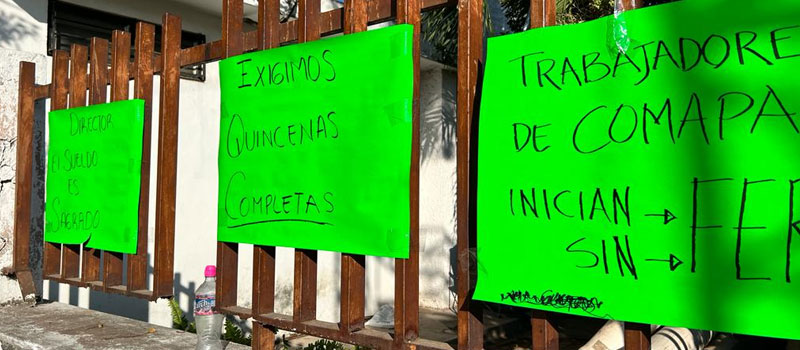 DIRECTOR
EL SUELDO
ES
SAGRADO
EXIGIMOS
QUINCENAS
COMPLETAS
TRABAJADORE
DE COMAPA
INICIAN → FER
SIN →